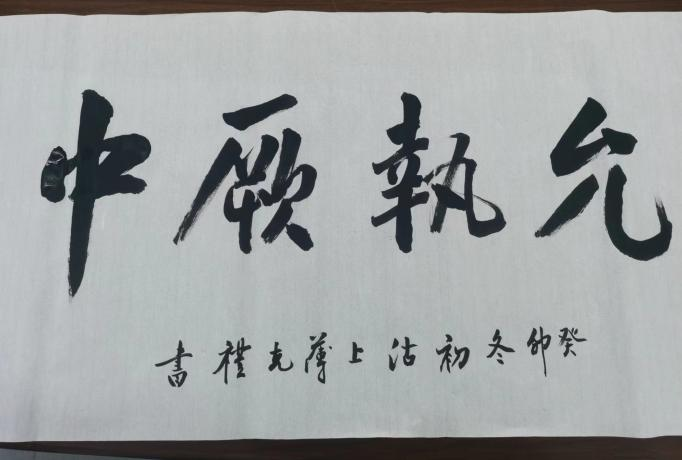 允執厥中
癸卯冬初沽上薄克禮書